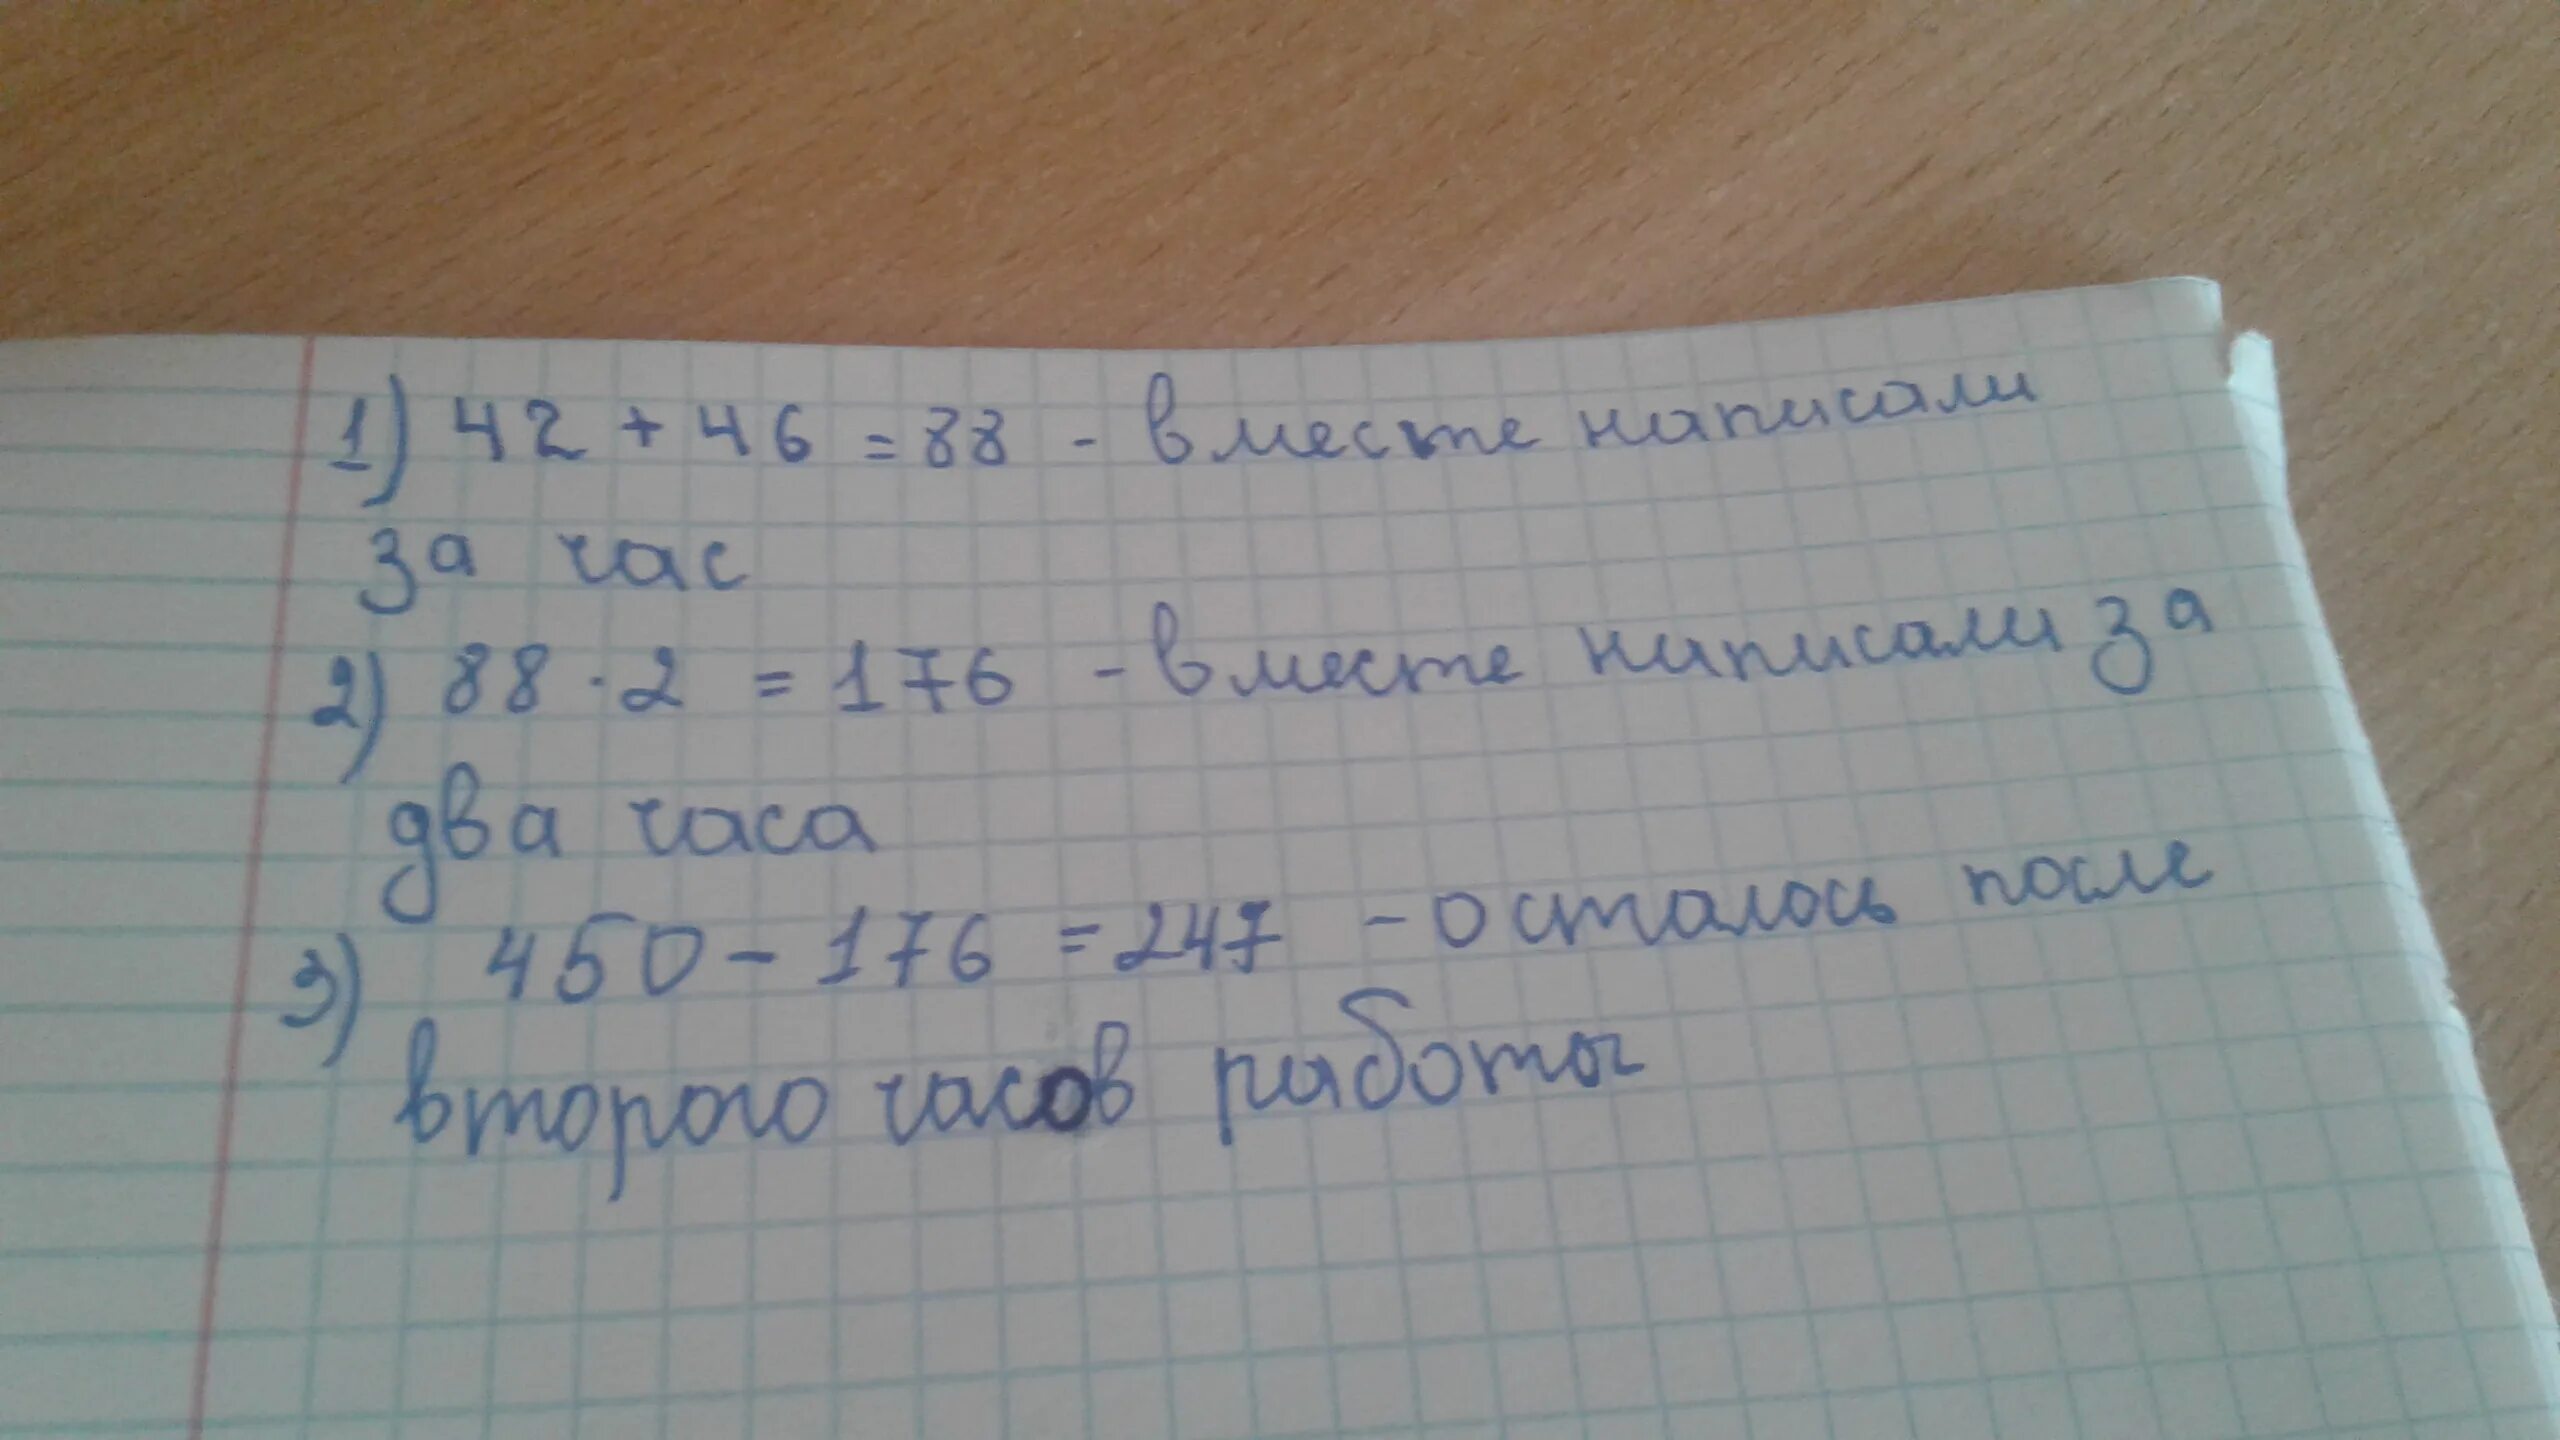 1) 42 + 46 = 88 - вместе написали
за час
2) 88 · 2 = 176 - вместе написали за
два часа
3) 450 - 176 = 247 - осталось после
второго часов работы